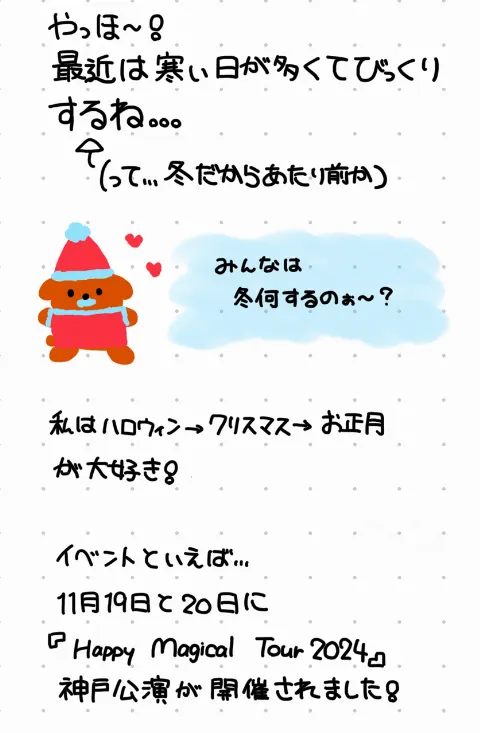 やっほ〜!
最近は寒い日が多くてびっくり
するね...
(って...冬だからあたり前か)
みんなは
冬何するのぉ〜?
私はハロウィン→クリスマス→お正月
が大好き!
イベントといえば...
11月19日と20日に
『Happy Magical Tour 2024』
神戸公演が開催されました!